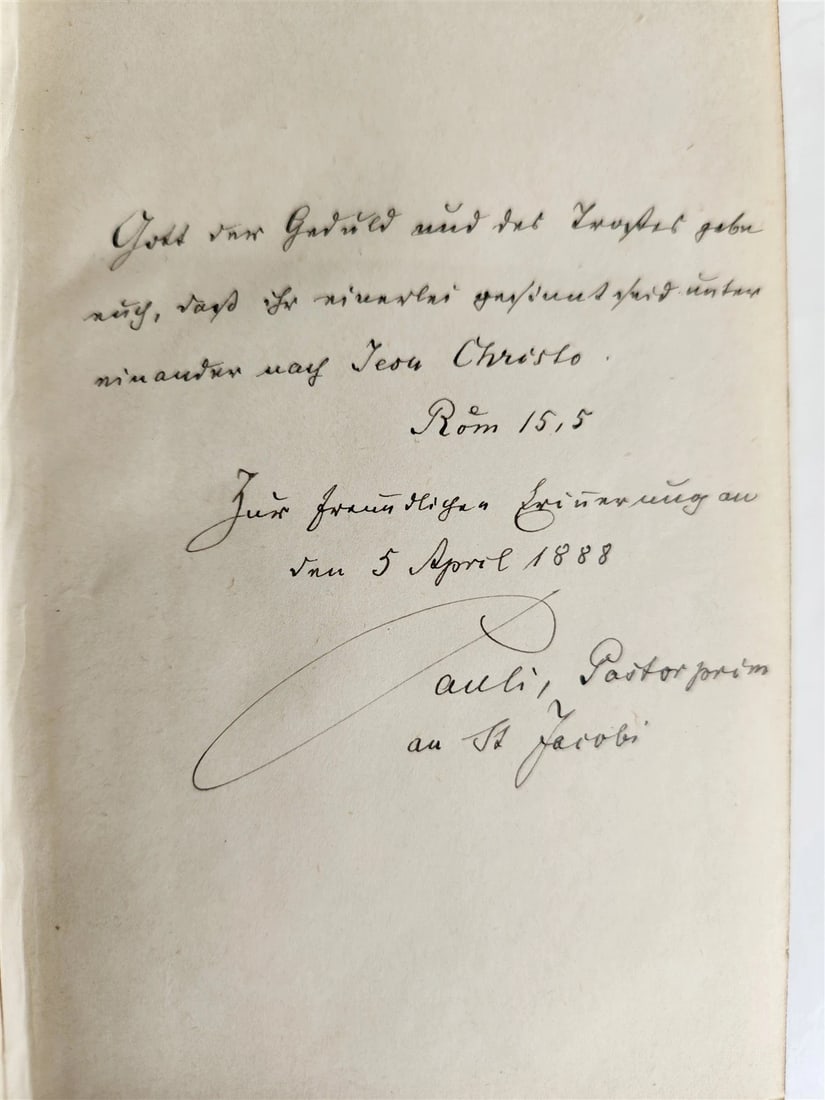 Gott der Geduld und des Trostes gebe
euch, daß ihr einerlei gesinnt seid unter
einander nach Jesu Christo.
Röm 15,5
Zur freundlichen Erinnerung an
den 5 April 1888
Pauli, Pastor prim
an St Jacobi